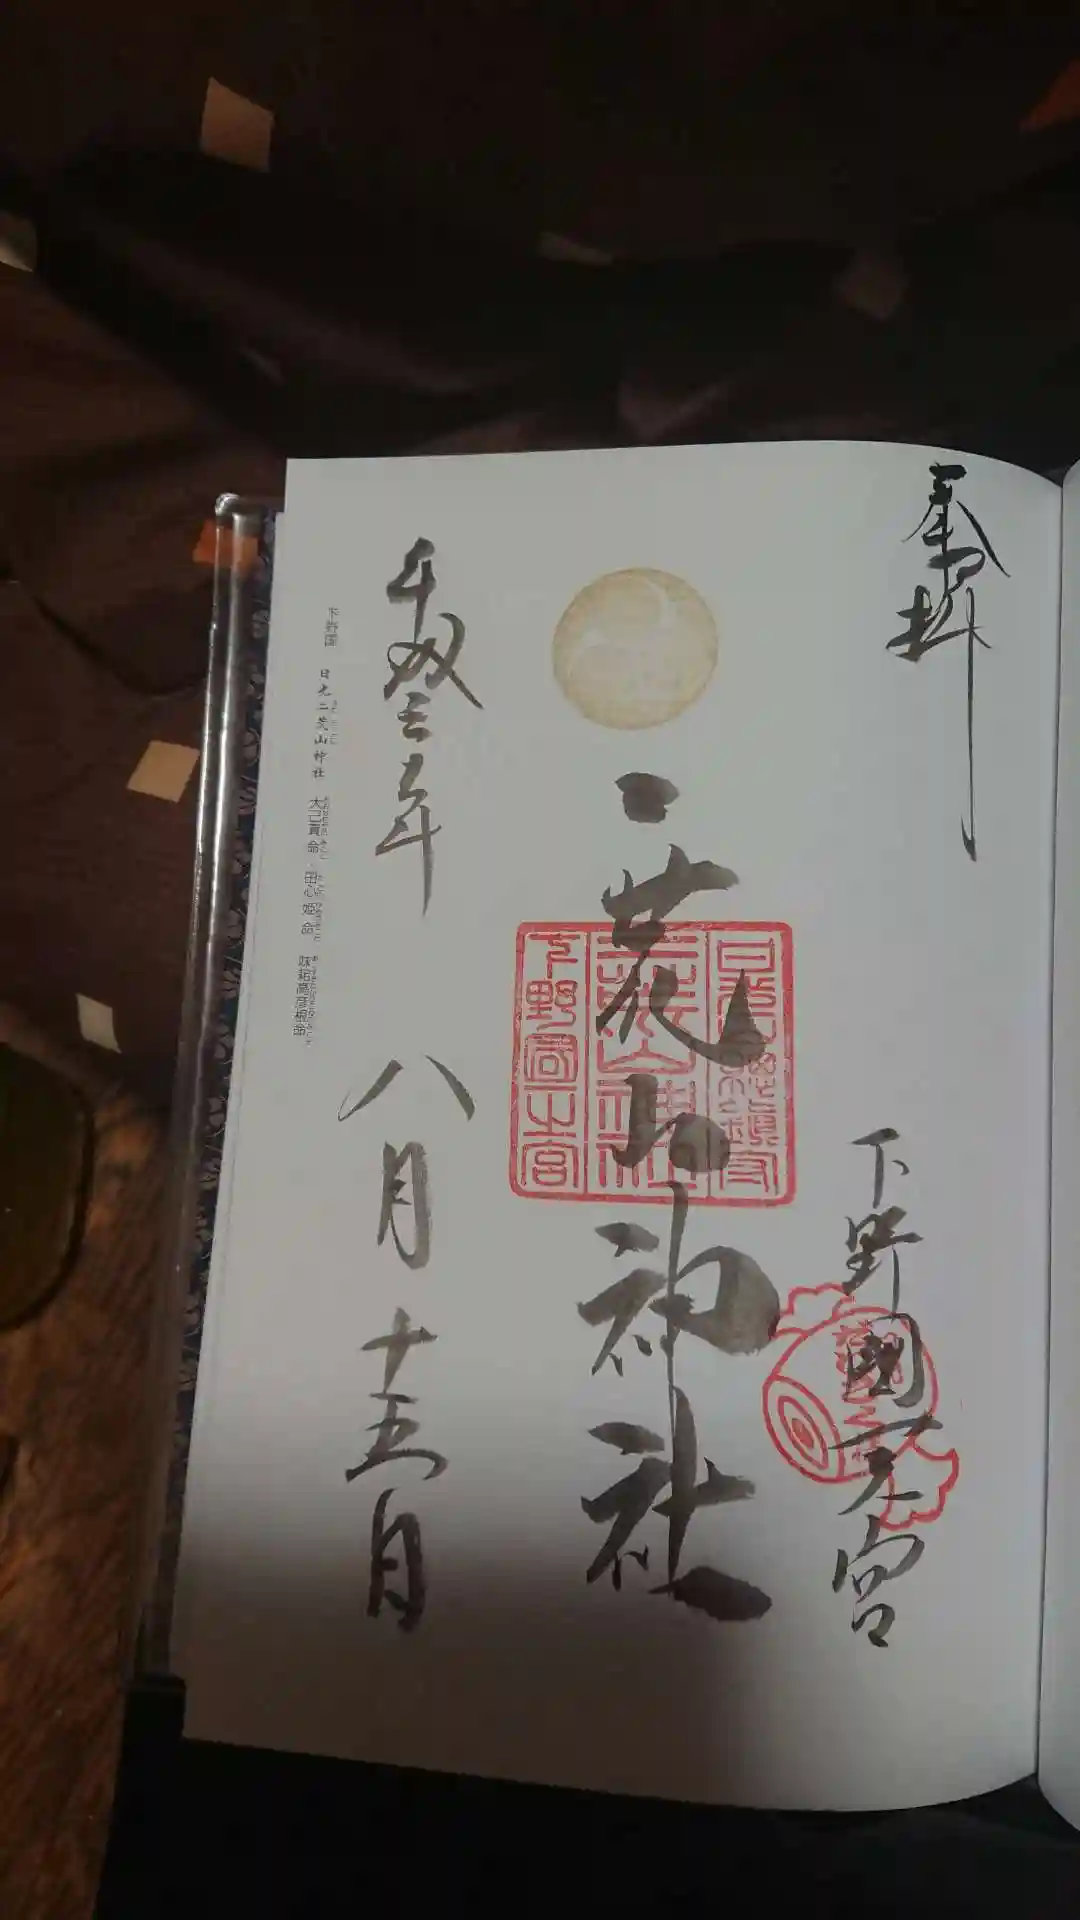 奉拝
下野國一之宮
二荒山神社
日光総鎮守
二荒山神社
下野國一之宮
年 八月十五日
下野国 日光二荒山神社 大己貴命・田心姫命 味耜高彦根命